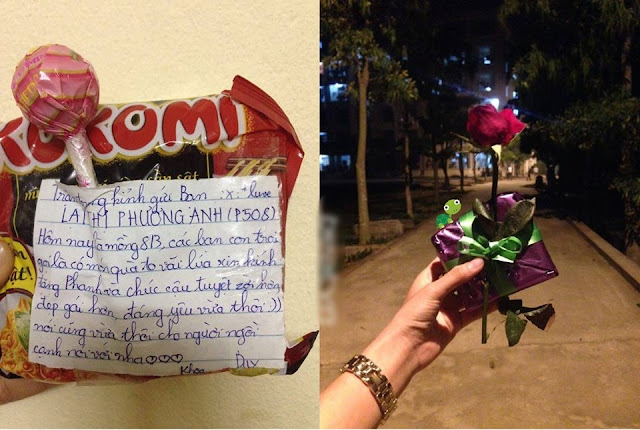 KOKOMI
Trân trọng kính gửi Bạn :x + luxe
LẠI THỊ PHƯƠNG ANH (P508)
Hôm nay là mồng 8B, các bạn con trai
gọi là có món quà to vãi lúa xin kính
tặng Phanh và chúc cậu tuyệt vời hơn
đẹp gái hơn, đáng yêu vừa thôi :))
nói cũng vừa thôi cho người ngồi
cạnh nói với nha
Khoa Duy